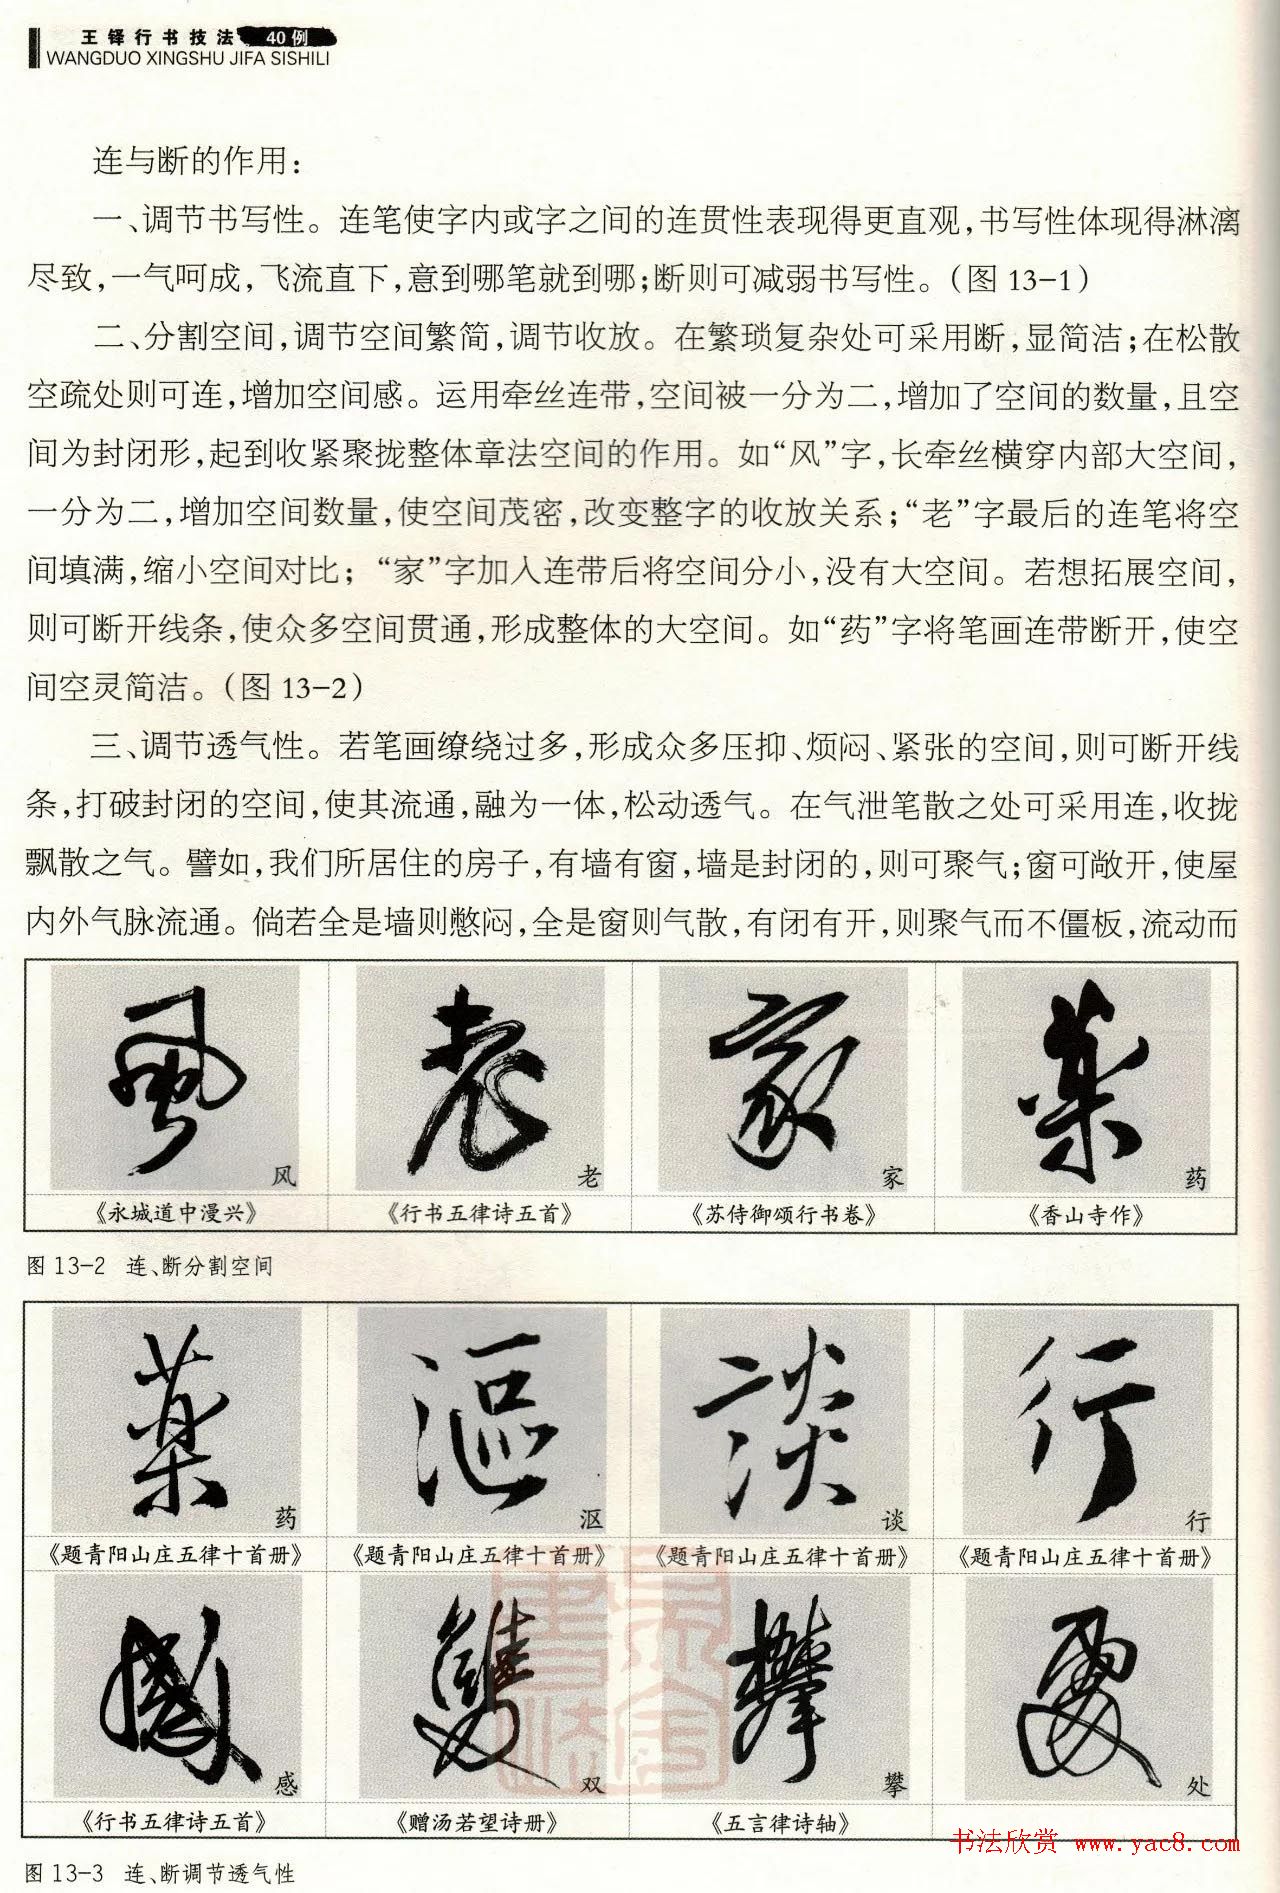 王铎行书技法 40例
WANGDUO XINGSHU JIFA SISHILI
连与断的作用：
一、调节书写性。连笔使字内或字之间的连贯性表现得更直观，书写性体现得淋漓
尽致，一气呵成，飞流直下，意到哪笔就到哪；断则可减弱书写性。（图 13-1）
二、分割空间，调节空间繁简，调节收放。在繁琐复杂处可采用断，显简洁；在松散
空疏处则可连，增加空间感。运用牵丝连带，空间被一分为二，增加了空间的数量，且空
间为封闭形，起到收紧聚拢整体章法空间的作用。如“风”字，长牵丝横穿内部大空间，
一分为二，增加空间数量，使空间茂密，改变整字的收放关系；“老”字最后的连笔将空
间填满，缩小空间对比；“家”字加入连带后将空间分小，没有大空间。若想拓展空间，
则可断开线条，使众多空间贯通，形成整体的大空间。如“药”字将笔画连带断开，使空
间空灵简洁。（图 13-2）
三、调节透气性。若笔画缭绕过多，形成众多压抑、烦闷、紧张的空间，则可断开线
条，打破封闭的空间，使其流通，融为一体，松动透气。在气泄笔散之处可采用连，收拢
飘散之气。譬如，我们所居住的房子，有墙有窗，墙是封闭的，则可聚气；窗可敞开，使屋
内外气脉流通。倘若全是墙则憋闷，全是窗则气散，有闭有开，则聚气而不僵板，流动而
風 老 家 藥
风 老 家 药
《永城道中漫兴》 《行书五律诗五首》 《苏侍御颂行书卷》 《香山寺作》
图 13-2 连、断分割空间
藥 漚 談 行
药 沤 谈 行
《题青阳山庄五律十首册》 《题青阳山庄五律十首册》 《题青阳山庄五律十首册》 《题青阳山庄五律十首册》
感 雙 攀 處
感 双 攀 处
《行书五律诗五首》 《赠汤若望诗册》 《五言律诗轴》
书法欣赏 www.yac8.com
图 13-3 连、断调节透气性